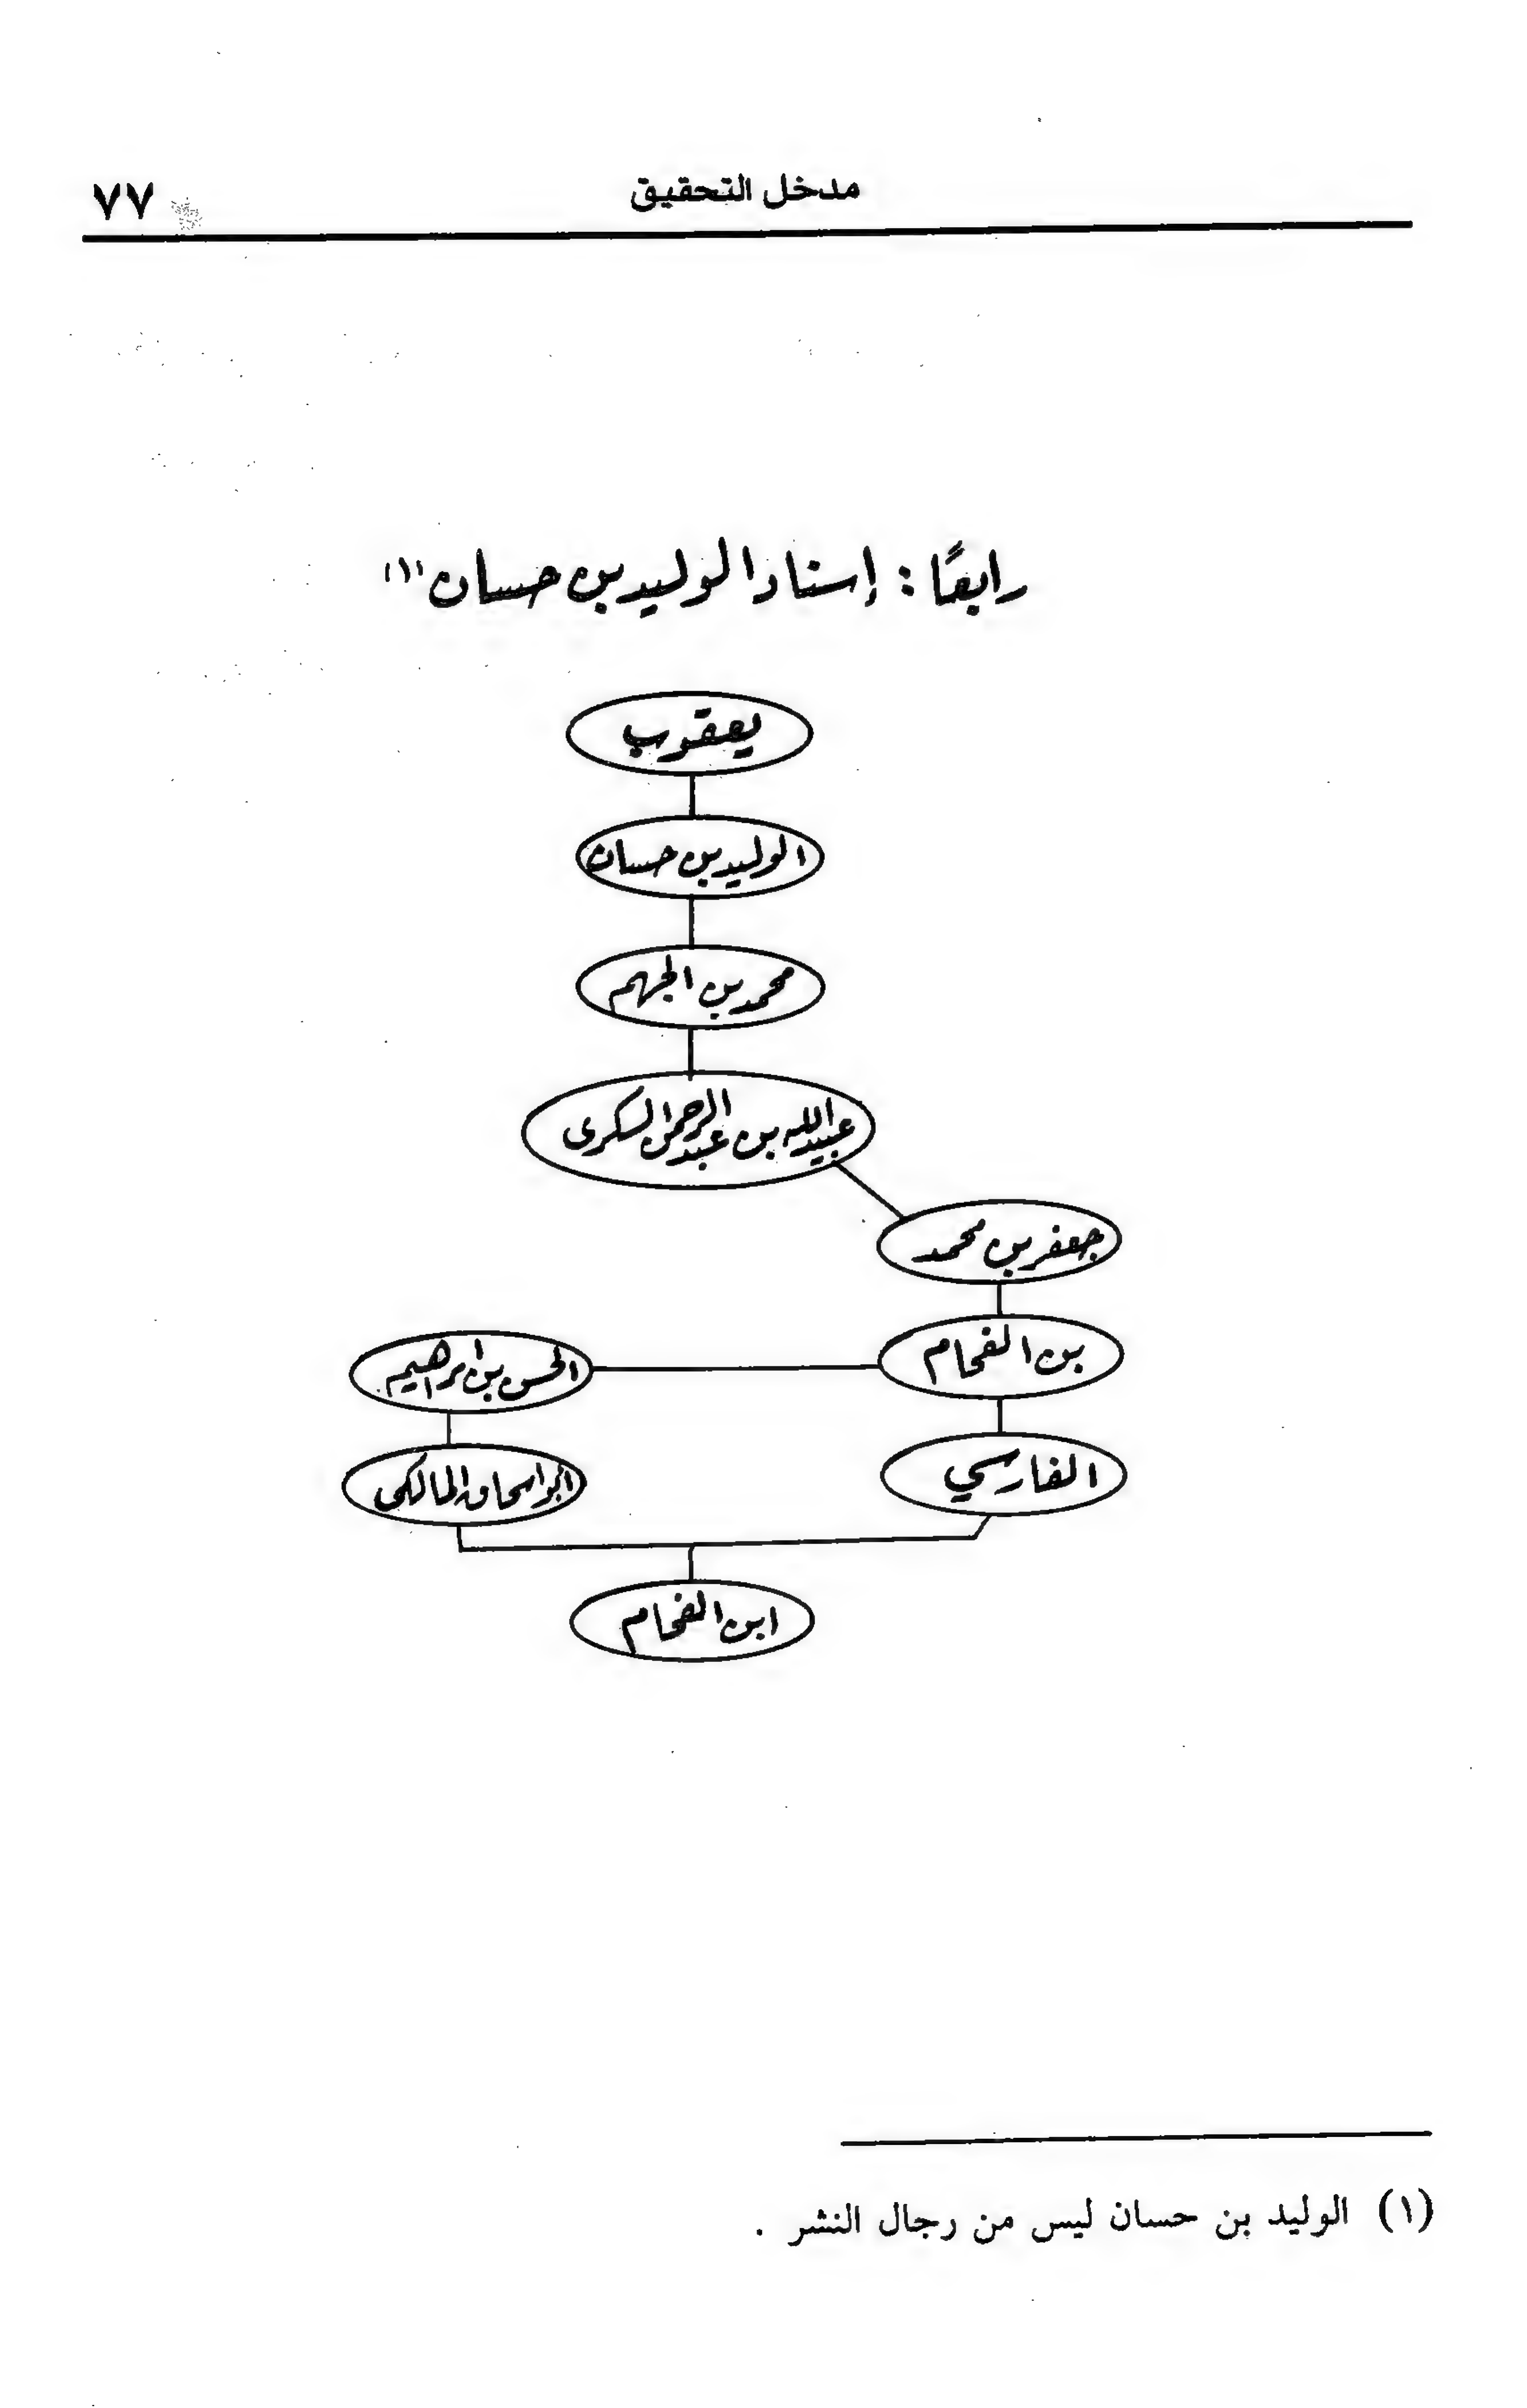 مدخل التحقيق
٧٧
رابعًا : إسناد الوليد بن حسان (١)
يعقوب
الوليد بن حسان
محمد بن الجهم
عبيد الله بن عبد الرحمن السكرى
جعفر بن محمد
بن الفحام
الحسن بن ابراهيم
الفارسي
ابو اسحاق المالكى
ابن الفحام
(١) الوليد بن حسان ليس من رجال النشر .